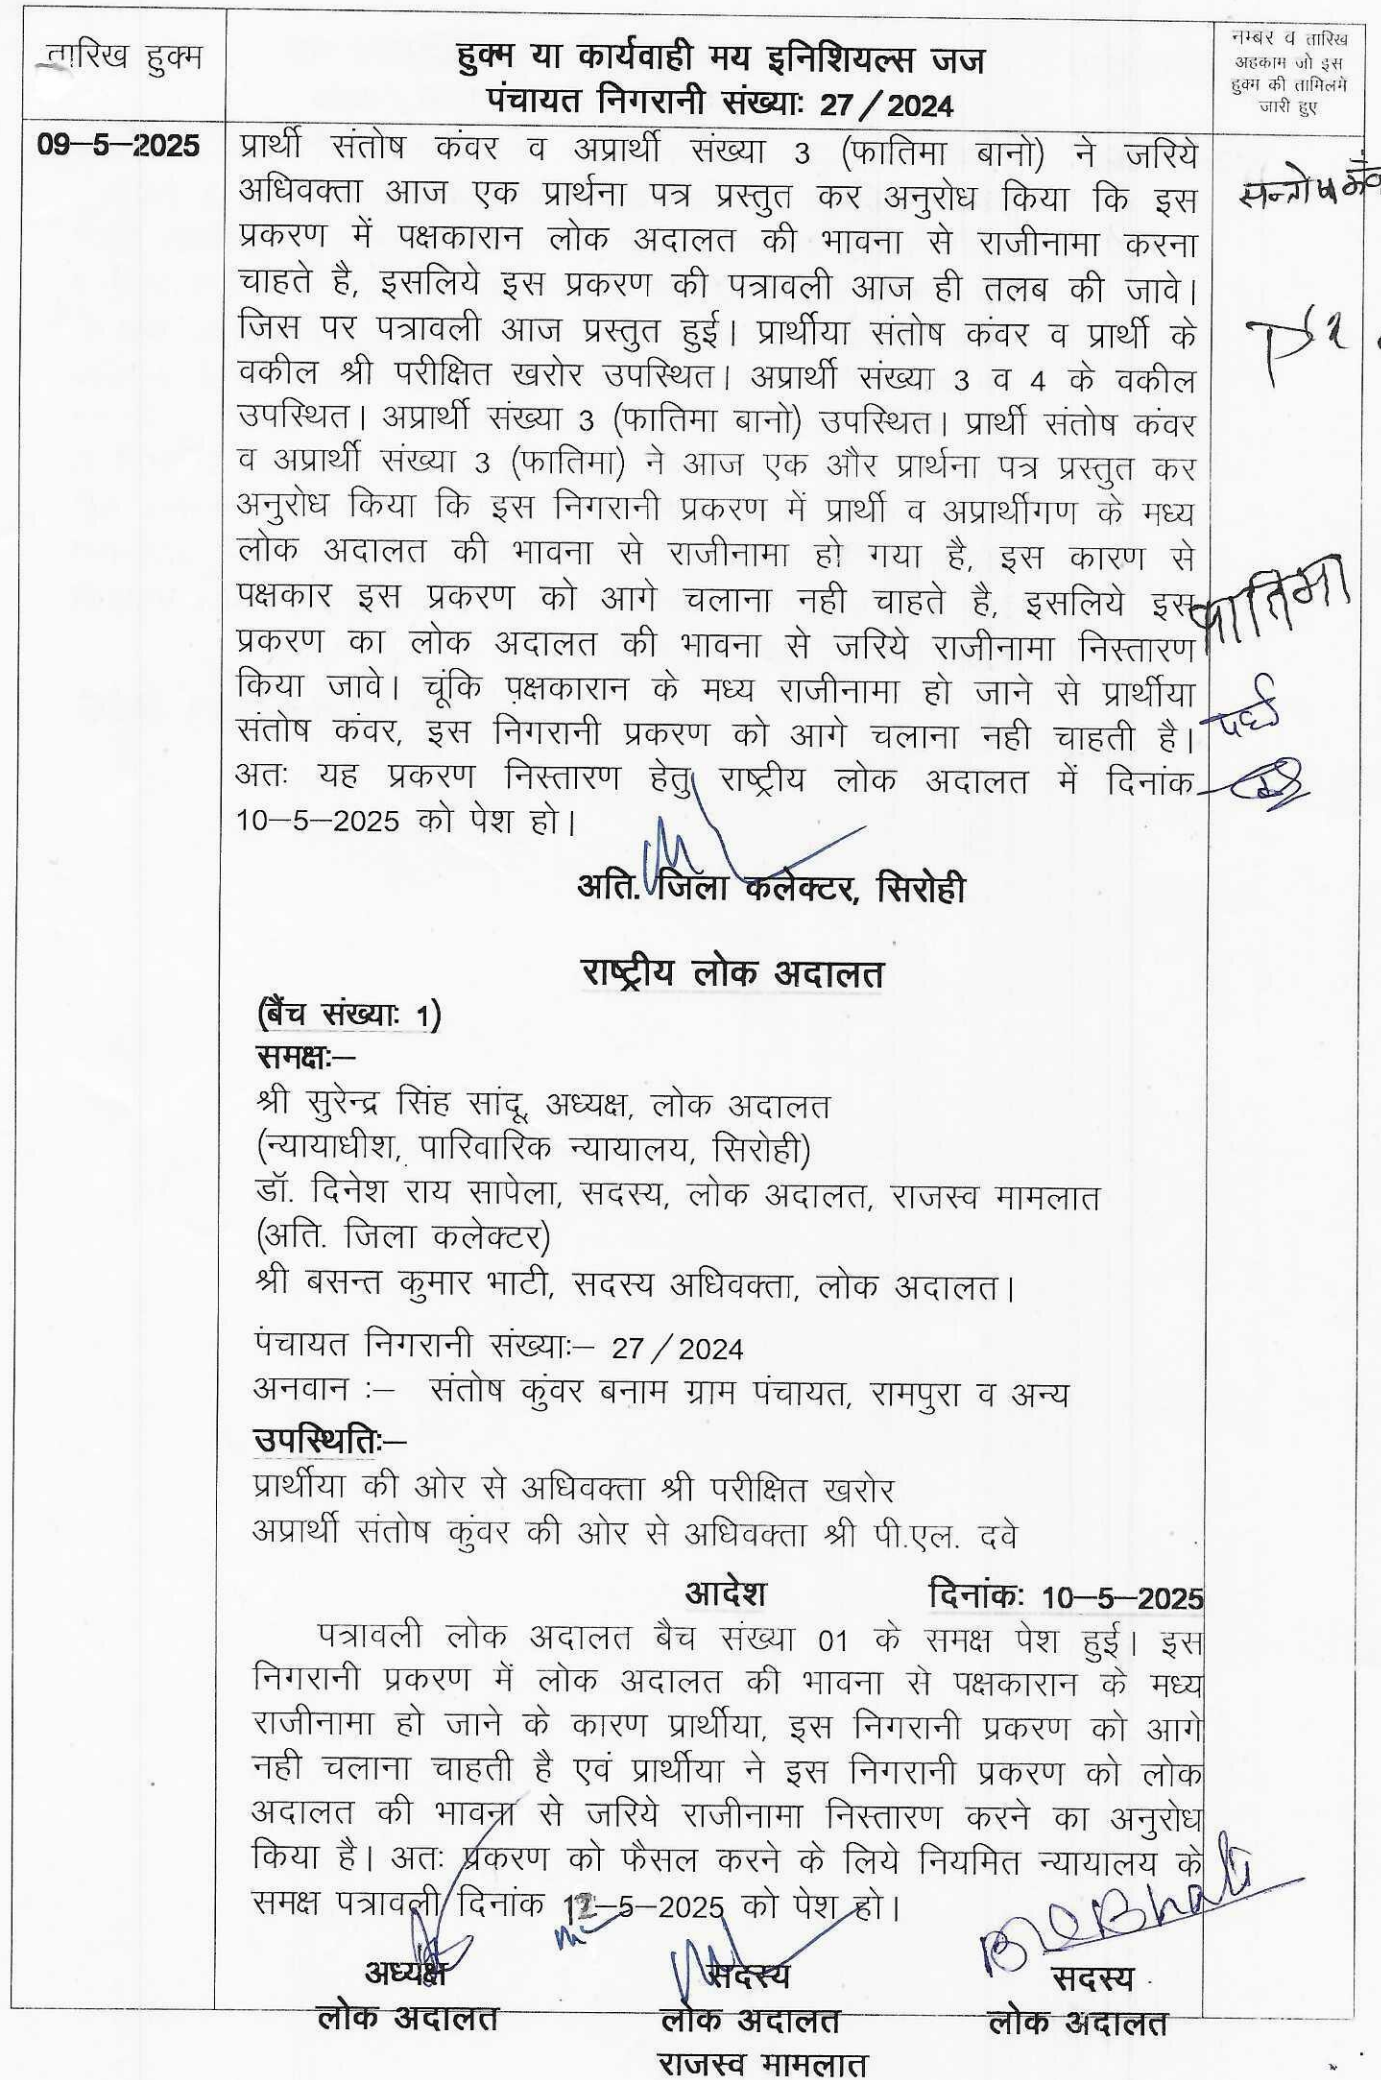 तारिख हुक्म
हुक्म या कार्यवाही मय इनिशियल्स जज
पंचायत निगरानी संख्याः 27/2024
नम्बर व तारिख
अहकाम जो इस
हुक्म की तामिलमे
जारी हुए
09-5-2025
प्रार्थी संतोष कंवर व अप्रार्थी संख्या 3 (फातिमा बानो) ने जरिये
अधिवक्ता आज एक प्रार्थना पत्र प्रस्तुत कर अनुरोध किया कि इस
प्रकरण में पक्षकारान लोक अदालत की भावना से राजीनामा करना
चाहते है, इसलिये इस प्रकरण की पत्रावली आज ही तलब की जावे।
जिस पर पत्रावली आज प्रस्तुत हुई। प्रार्थीया संतोष कंवर व प्रार्थी के
वकील श्री परीक्षित खरोर उपस्थित। अप्रार्थी संख्या 3 व 4 के वकील
उपस्थित। अप्रार्थी संख्या 3 (फातिमा बानो) उपस्थित। प्रार्थी संतोष कंवर
व अप्रार्थी संख्या 3 (फातिमा) ने आज एक और प्रार्थना पत्र प्रस्तुत कर
अनुरोध किया कि इस निगरानी प्रकरण में प्रार्थी व अप्रार्थीगण के मध्य
लोक अदालत की भावना से राजीनामा हो गया है, इस कारण से
पक्षकार इस प्रकरण को आगे चलाना नही चाहते है, इसलिये इस
प्रकरण का लोक अदालत की भावना से जरिये राजीनामा निस्तारण
किया जावे। चूंकि पक्षकारान के मध्य राजीनामा हो जाने से प्रार्थीया
संतोष कंवर, इस निगरानी प्रकरण को आगे चलाना नही चाहती है।
अतः यह प्रकरण निस्तारण हेतु राष्ट्रीय लोक अदालत में दिनांक
10-5-2025 को पेश हो।
फातिमा
अति. जिला कलेक्टर, सिरोही
राष्ट्रीय लोक अदालत
(बैंच संख्याः 1)
समक्षः-
श्री सुरेन्द्र सिंह सांदू, अध्यक्ष, लोक अदालत
(न्यायाधीश, पारिवारिक न्यायालय, सिरोही)
डॉ. दिनेश राय सापेला, सदस्य, लोक अदालत, राजस्व मामलात
(अति. जिला कलेक्टर)
श्री बसन्त कुमार भाटी, सदस्य अधिवक्ता, लोक अदालत।
पंचायत निगरानी संख्याः- 27/2024
अनवान :- संतोष कुंवर बनाम ग्राम पंचायत, रामपुरा व अन्य
उपस्थितिः-
प्रार्थीया की ओर से अधिवक्ता श्री परीक्षित खरोर
अप्रार्थी संतोष कुंवर की ओर से अधिवक्ता श्री पी.एल. दवे
आदेश दिनांकः 10-5-2025
पत्रावली लोक अदालत बैच संख्या 01 के समक्ष पेश हुई। इस
निगरानी प्रकरण में लोक अदालत की भावना से पक्षकारान के मध्य
राजीनामा हो जाने के कारण प्रार्थीया, इस निगरानी प्रकरण को आगे
नही चलाना चाहती है एवं प्रार्थीया ने इस निगरानी प्रकरण को लोक
अदालत की भावना से जरिये राजीनामा निस्तारण करने का अनुरोध
किया है। अतः प्रकरण को फैसल करने के लिये नियमित न्यायालय के
समक्ष पत्रावली दिनांक 12-5-2025 को पेश हो।
अध्यक्ष सदस्य सदस्य
लोक अदालत लोक अदालत लोक अदालत
राजस्व मामलात